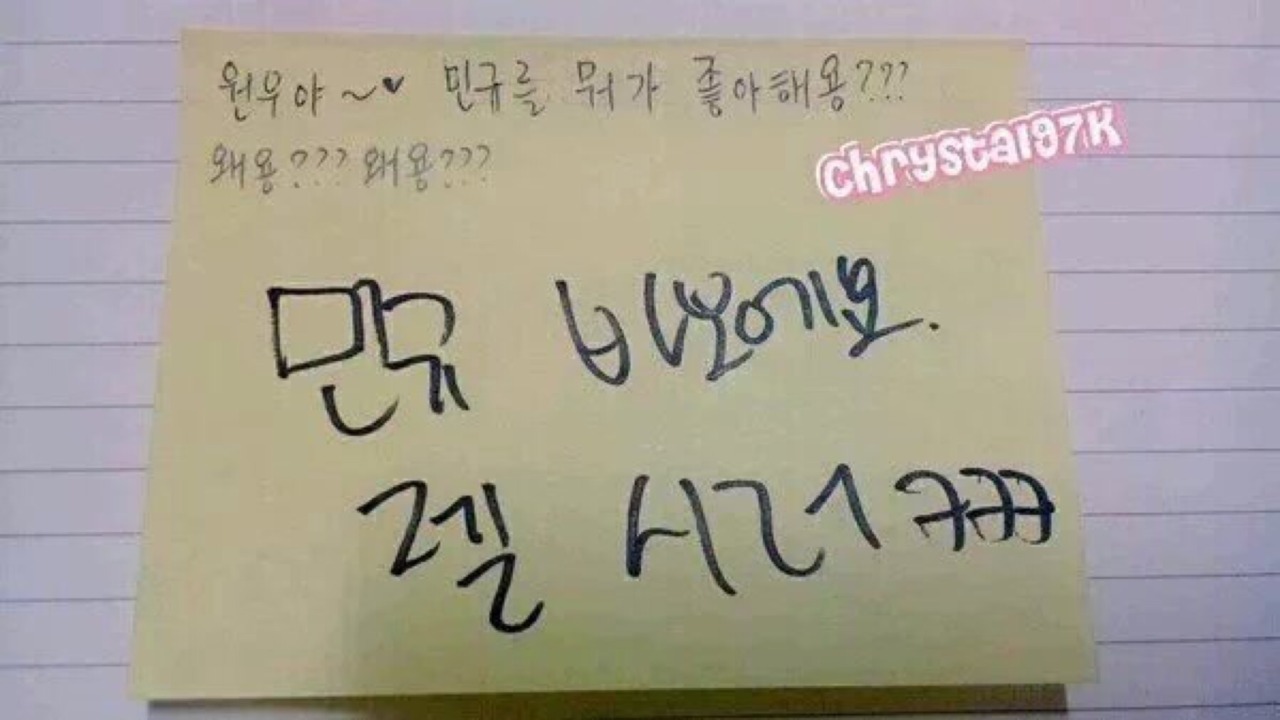 원우야~♥ 민규를 뭐가 좋아해용???
왜용??? 왜용???
chrystal97k
민규 바보에요.
젤 시러 ㅋㅋㅋ